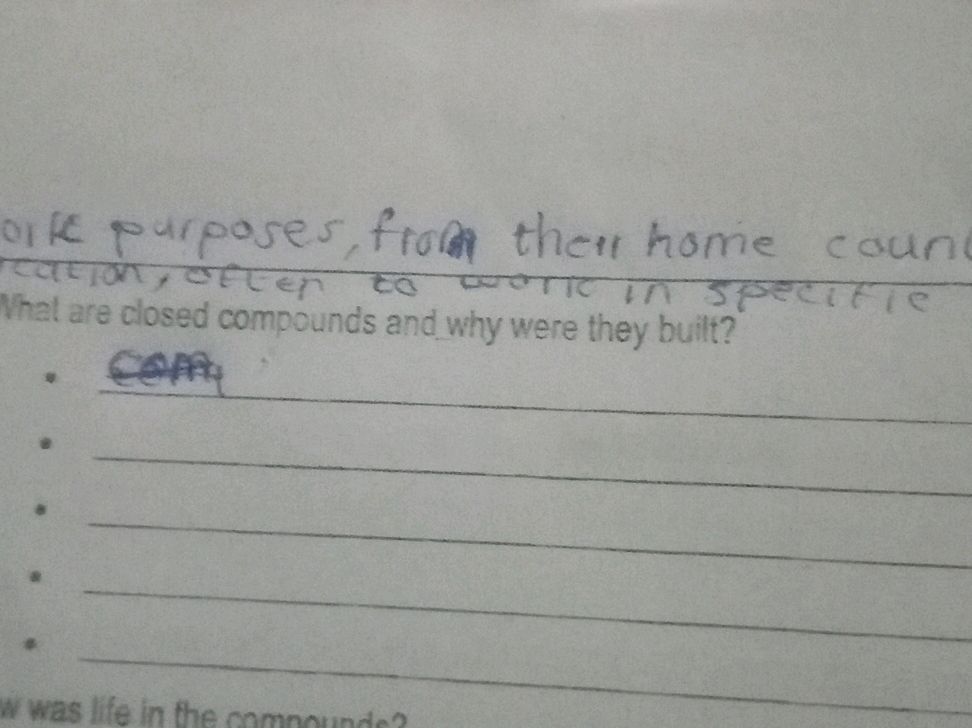 purposes, from their home
often to work in specific
What are closed compounds and why were they built?
was life in the compounds?